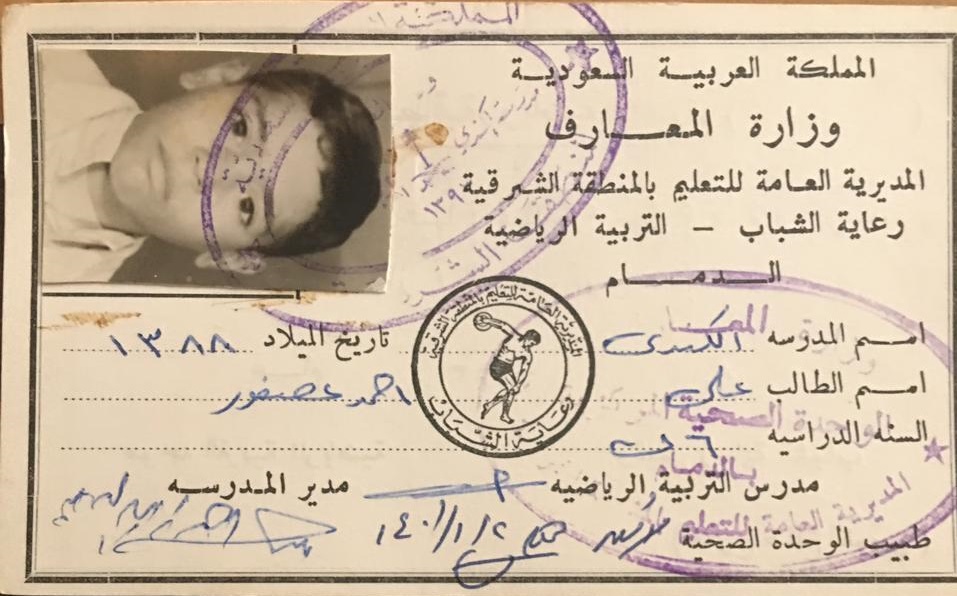 المملكة العربية السعودية
وزارة المعارف
المديرية العامة للتعليم بالمنطقة الشرقية
رعاية الشباب — التربية الرياضية
الدمام
اسم المدرسه الكندي تاريخ الميلاد ١٣٨٨
اسم الطالب علي احمد عصفور
السنه الدراسيه ٦
مدرس التربية الرياضيه مدير المدرسه
طبيب الوحدة الصحية ١٤٠١/١/٢
المديرية العامة للتعليم بالمنطقة الشرقية
رعاية الشباب
المملكة
الوحدة الصحية
بالدمام
المديرية العامة للتعليم